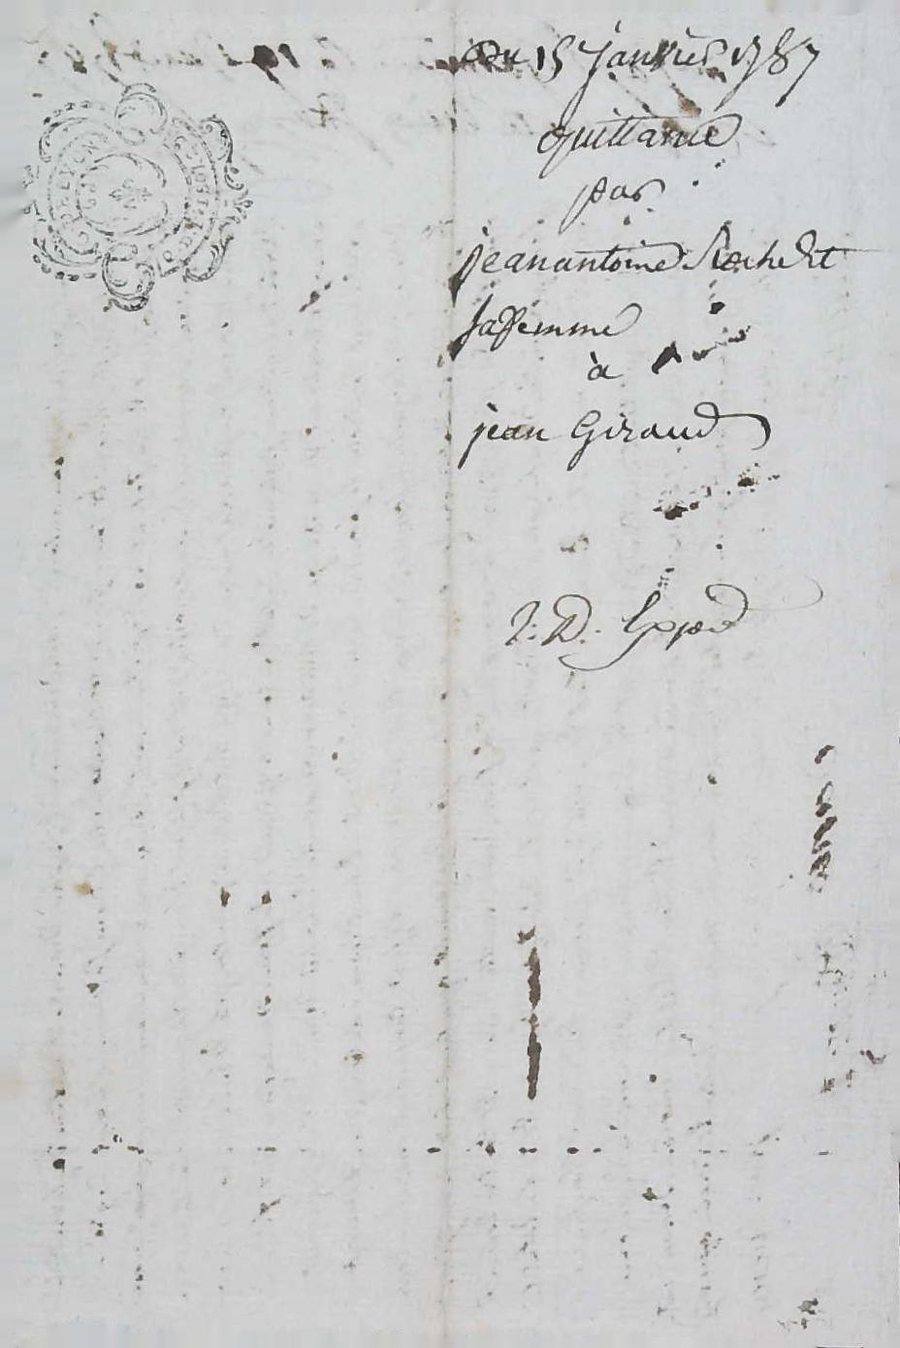 Du 15 janvier 1787
quittance
par
jean antoine Roche et
sa femme
à
jean Giraud
DE LYON
2: D: Exped